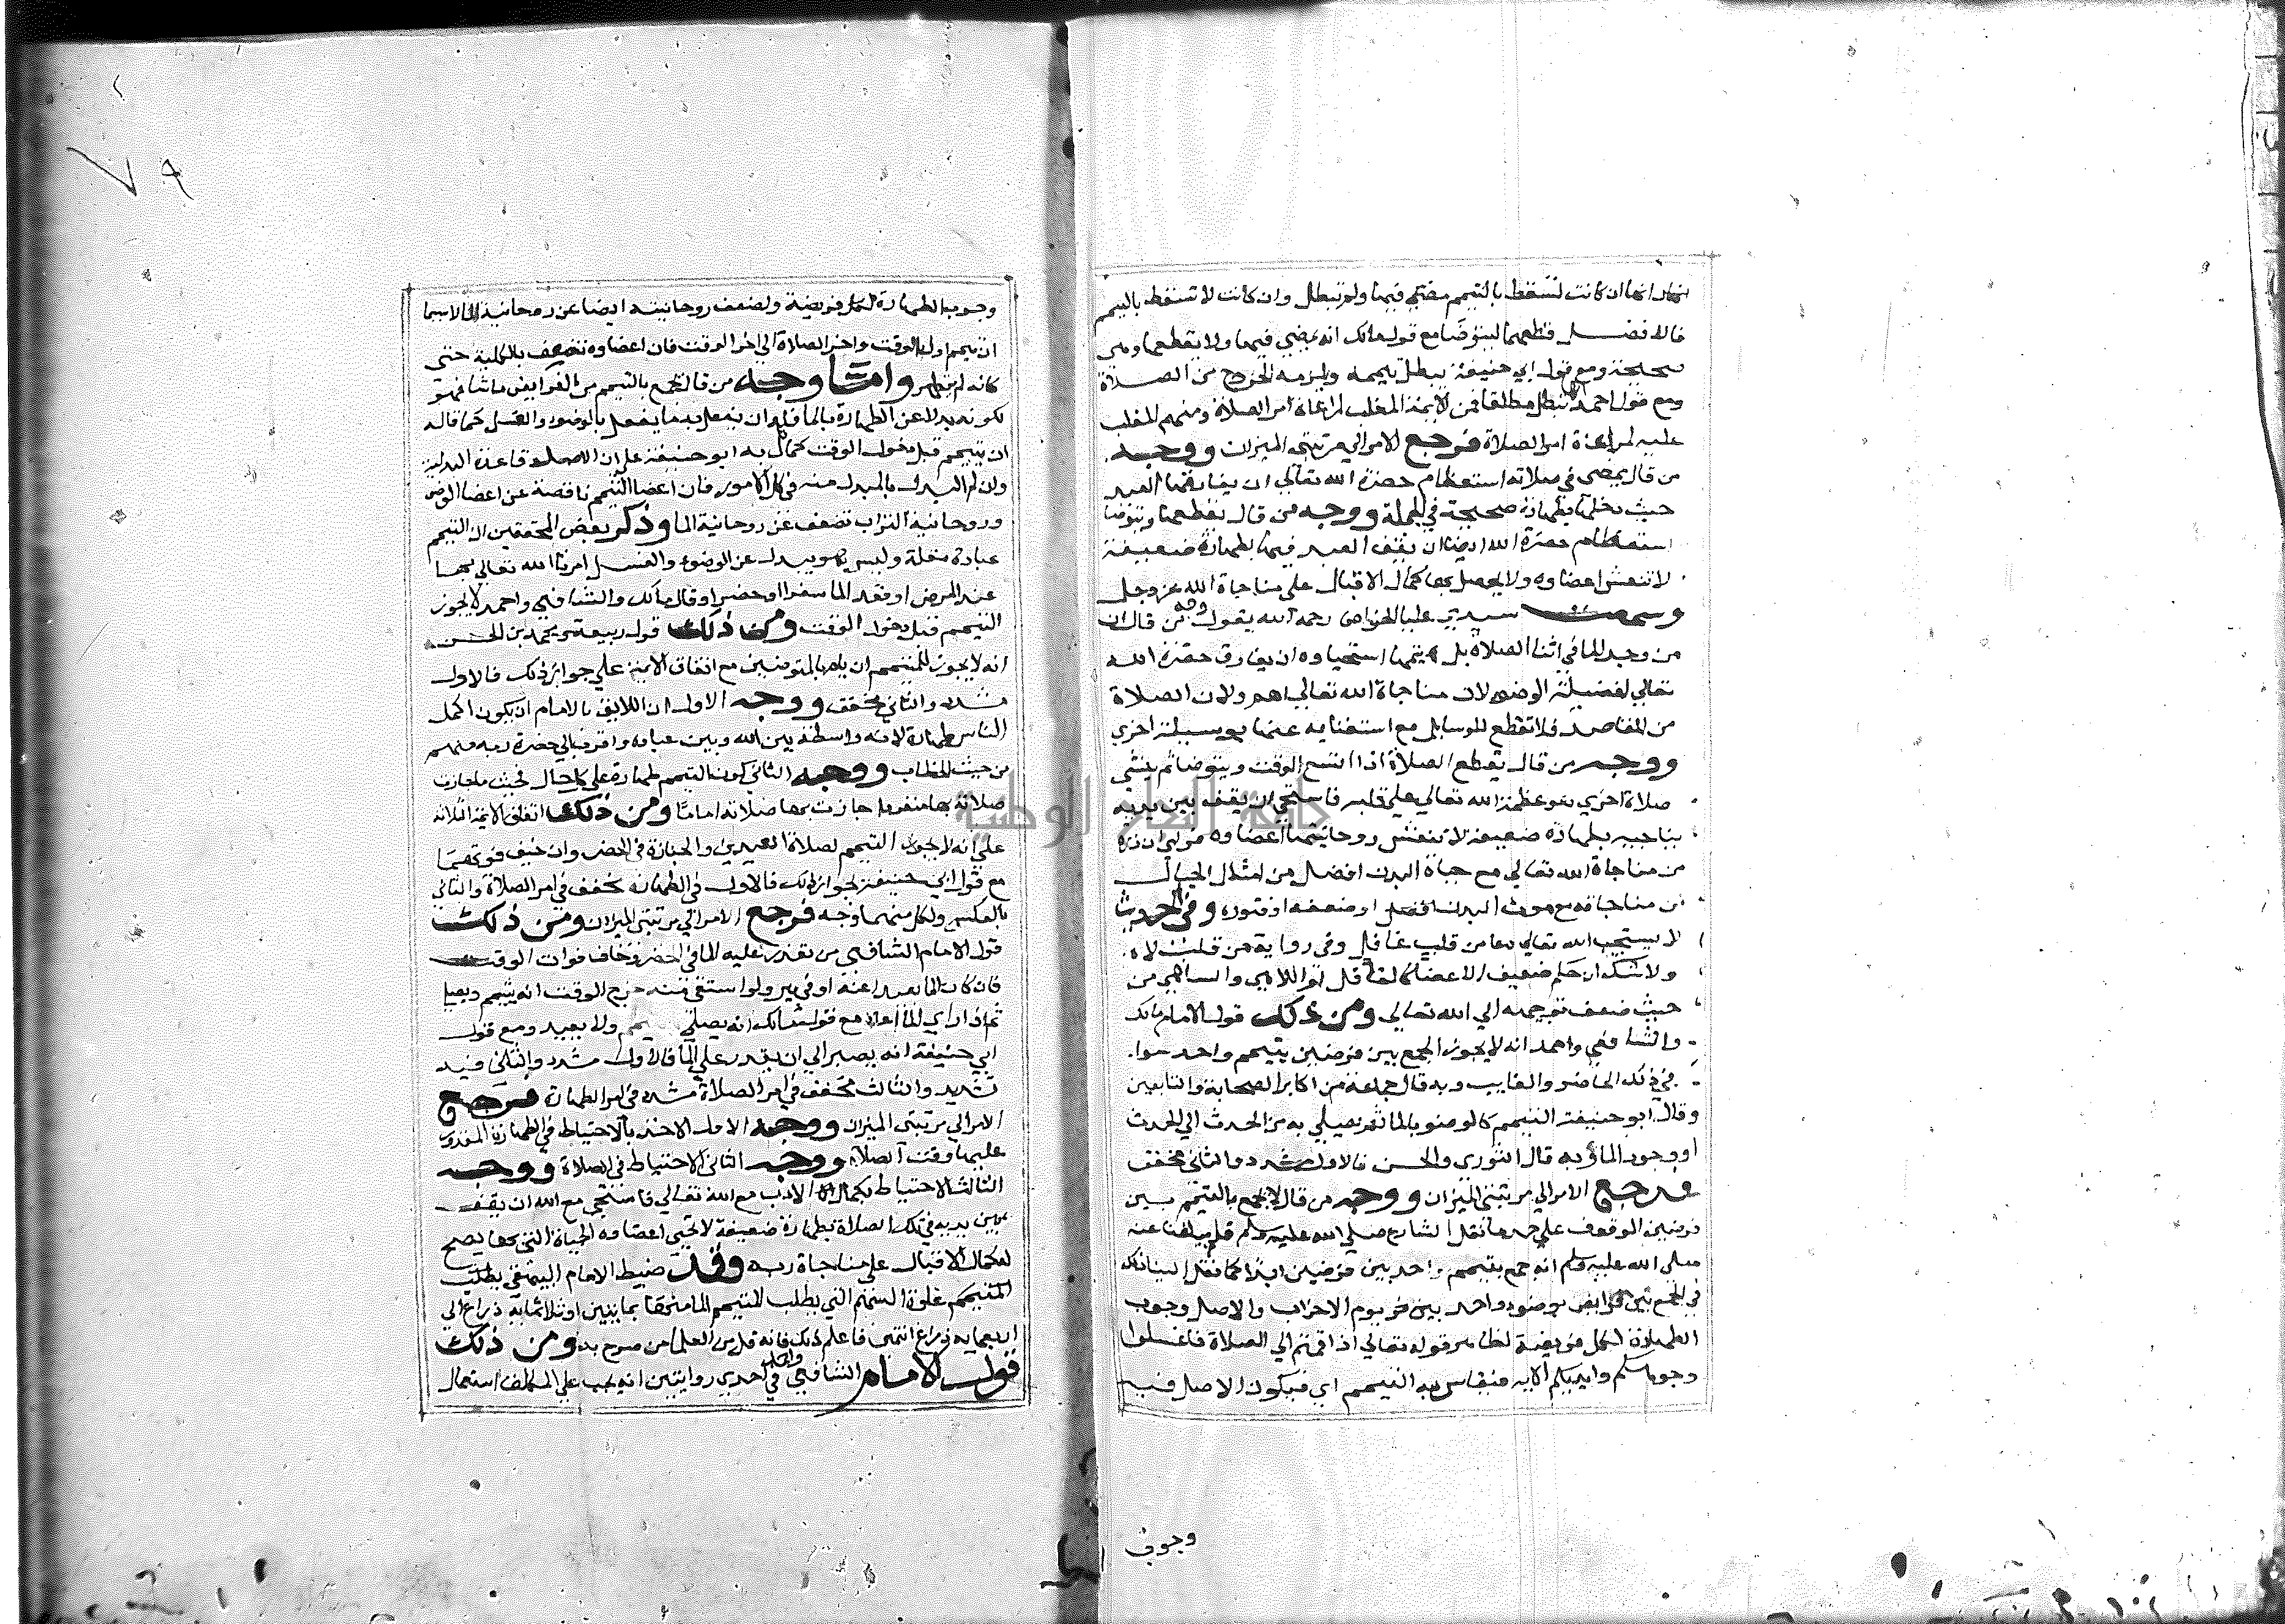 انها ان كانت تسقط بالتيمم مضي فيها ولم تبطل وان كانت لا تسقط بالتيمم
فالافضل قطعها ليتوضا مع قول مالك انه يمضي فيها ولا يقطعها وهي
صحيحة ومع قول ابي حنيفة يبطل تيممه ويلزمه الخروج من الصلاة
ومع قول احمد تبطل مطلقا فمن الايمة المغلب لمراعاة امر الصلاة ومنهم المغلب
عليه لمراعاة امر الصلاة فرجع الامر الي مرتبتي الميزان ووجه
من قال يمضي في صلاته استعظام حضرة الله تعالي ان يفارقها العبد
حيث دخلها بطهارة صحيحة في الجملة ووجه من قال يقطعها ويتوضا
استعظام حضرة الله ايضا ان يقف العبد فيها بطهارة ضعيفة
لا تنعش اعضاوه ولا يحصل بها كمال الاقبال علي مناجاة الله عز وجل
وسمعت سيدي عليا الخواص رحمه الله يقول وجه من قال ان
من وجد الما في اثنا الصلاة بل يتمها استحياوه ان يفارق حضرة الله
تعالي لفضيلة الوضو لان مناجاة الله تعالي اهم ولان الصلاة
من المقاصد فلا تقطع للوسايل مع استغنايه عنها بوسيلة اخري
ووجه من قال يقطع الصلاة اذا اتسع الوقت ويتوضا ثم ينشي
صلاة اخري هو عظمة الله تعالي علي قلبه فاستحي ان يقف بين يديه
يناجيه بطهارة ضعيفة لا تنعش روحانيتها اعضاوه فراي ان ذرة
من مناجاة الله تعالي مع حياة البدن افضل من امثال الجبال
من مناجاته مع موت البدن او ضعفه او فتوره وفي الحديث
لا يستجيب الله تعالي دعا من قلب غافل وفي رواية من قلب لاه
ولا شك ان حكم ضعيف الاعضا كالغافل او اللاهي والساهي من
حيث ضعف توجهه الي الله تعالي ومن ذلك قول الامام مالك
والشافعي واحمد انه لا يجوز الجمع بين فرضين بتيمم واحد سوا
في ذلك الحاضر والغايب وبه قال جماعة من اكابر الصحابة والتابعين
وقال ابو حنيفة التيمم كالوضو بالما يصلي به من الحدث الي الحدث
او وجود الما وبه قال الثوري والحسن فالاول مشدد والثاني مخفف
فرجع الامر الي مرتبتي الميزان ووجه من قال لا يجمع بالتيمم بين
فرضين الوقوف علي حد ما نقل الشارع صلي الله عليه وسلم فلم يبلغنا عنه
صلي الله عليه وسلم انه جمع بتيمم واحد بين فرضين ابدا كما نقل الينا ذلك
في الجمع بين الفرايض بوضوء واحد يوم الاحزاب والاصل وجوب
الطهارة لكل فريضة لظاهر قوله تعالي اذا قمتم الي الصلاة فاغسلوا
وجوهكم وايديكم الاية فيقاس به التيمم اي فيكون الاصل فيه
وجوب
٧٩
وجوب الطهارة لكل فريضة ولضعف روحانيته ايضا عن روحانية الما لاسيما
ان تيمم اول الوقت واخر الصلاة الي اخر الوقت فان اعضاوه تضعف بالكلية حتي
كانه لم يتطهر واما وجه من قال يجمع بالتيمم من الفرايض ما شا فهو
لكونه بدلا عن الطهارة بالما فله ان يفعل به ما يفعل بالوضوء والغسل كما قاله
ان يتيمم قبل دخول الوقت كما قال به ابو حنيفة علي ان الاصل قاعدة البدلية
وان لم البدل بالمبدل منه في كل الامور فان اعضا التيمم ناقصة عن اعضا الوضو
وروحانية التراب تضعف عن روحانية الما وذكر بعض المحققين ان التيمم
عبادة مستقلة وليس هو ببدل عن الوضوء والغسل امرنا الله تعالي بها
عند المرض او فقد الما سفرا او حضرا وقال مالك والشافعي واحمد لا يجوز
التيمم قبل دخول الوقت ومن ذلك قول ربيعة ومحمد بن الحسن
انه لا يجوز للمتيمم ان يام بالمتوضين مع اتفاق الايمة علي جواز ذلك فالاول
مشدد والثاني مخفف ووجه الاول ان اللايق بالامام ان يكون اكمل
الناس طهارة لانه واسطة بين الله وبين عباده واقرب الي حضرة ربه منهم
من حيث الخطاب ووجه الثاني كون التيمم طهارة علي كل حال فحيث ما جازت
صلاته بها منفردا جازت بها صلاته اماما ومن ذلك اتفاق الايمة الثلاثة
علي انه لا يجوز التيمم لصلاة العيدين والجنازة في الحضر وان خيف فوتهما
مع قول ابي حنيفة بجواز ذلك فالاول في الطهارة مخفف في امر الصلاة والثاني
بالعكس ولكل منهما وجه فرجع الامر الي مرتبتي الميزان ومن ذلك
قول الامام الشافعي من تعذر عليه الما في الحضر وخاف فوات الوقت
فان كان الما بعيدا عنه او في بير ولو استقي منه خرج الوقت انه يتيمم ويصلي
ثم اذا راي الما اعاد مع قول مالك انه يصلي بتيمم ولا يعيد ومع قول
ابي حنيفة انه يصبر الي ان يقدر علي الما فالاول مشدد والثاني فيه
تشديد والثالث مخفف في امر الصلاة مشدد في امر الطهارة فرجع
الامر الي مرتبتي الميزان ووجه الاول الاخذ بالاحتياط في الطهارة المقدور
عليها وقت الصلاة ووجه الثاني الاحتياط في الصلاة ووجه
الثالث الاحتياط لكمال الادب مع الله تعالي فاستحي مع الله ان يقف
بين يديه في تلك الصلاة بطهارة ضعيفة لا تحيي اعضاوه الحياة التي بها يصح
له كمال الاقبال علي مناجاة ربه وقد ضبط الامام البيهقي بطلب
المتيمم غلوة السهم التي يطلب المتيمم الما منها بمايتين او ثلاثماية ذراع الي
اربعماية ذراع انتهي فاعلم ذلك فانه قل من العلما من صرح به ومن ذلك
قول الامام الشافعي واحمد في احدي روايتين انه يجب علي المكلف استعمال
جامعة النجاح الوطنية